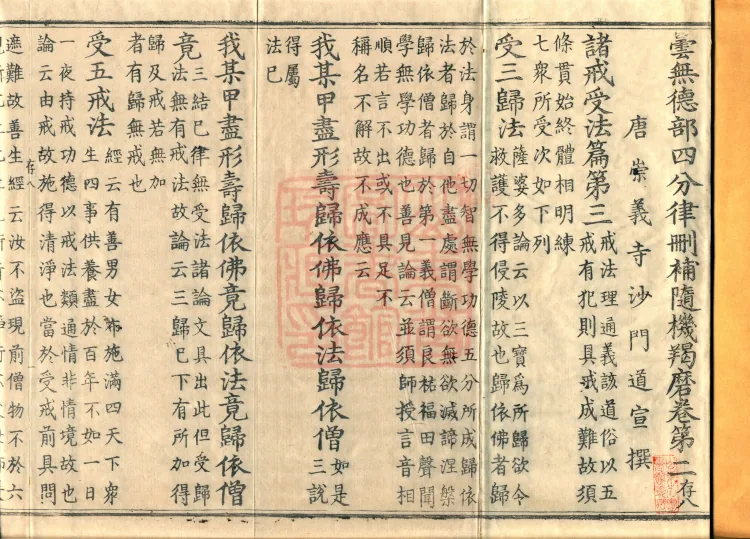 曇無德部四分律刪補隨機羯磨卷第二 存八
唐崇義寺沙門道宣撰
諸戒受法篇第三 戒法理通義該道俗以五
戒有犯則具戒成難故須
條貫始終體相明練
七衆所受次如下列
受三歸法 薩婆多論云以三寶為所歸欲令
救護不得侵陵故也歸依佛者歸
於法身謂一切智無學功德五分所成歸依
法者歸於自他盡處謂斷欲無欲滅諦涅槃
歸依僧者歸於第一義僧謂良祐福田聲聞
學無學功德也善見論云並須師授言音相
順若言不出或不具足不
稱名不解故不成應云
我某甲盡形壽歸依佛歸依法歸依僧 如是
三說
得屬
法已
我某甲盡形壽歸依佛竟歸依法竟歸依僧
竟 三結已律無受法諸論文具出此但受歸
法無有戒法故論云三歸已下有所加得
歸及戒若無加
者有歸無戒也
受五戒法 經云有善男女布施滿四天下衆
生四事供養盡於百年不如一日
一夜持戒功德以戒法類通情非情境故也
論云由戒故施得清淨也當於受戒前具問
遮難故善生經云汝不盜現前僧物不於六
存八